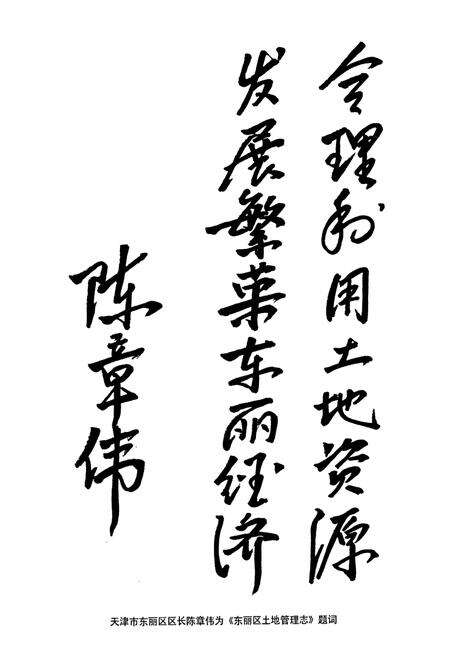 合理利用土地资源
发展繁荣东丽经济
陈章伟
天津市东丽区区长陈章伟为《东丽区土地管理志》题词